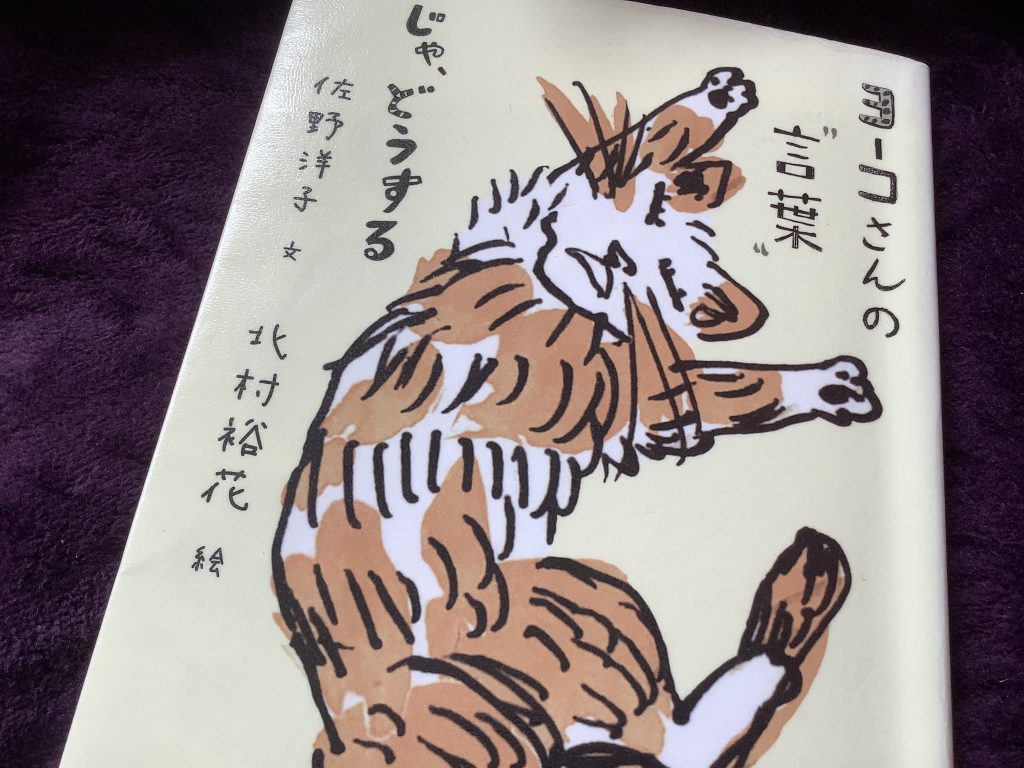 ヨーコさんの
"言葉"
じゃ、どうする
佐野洋子 文
北村裕花 絵